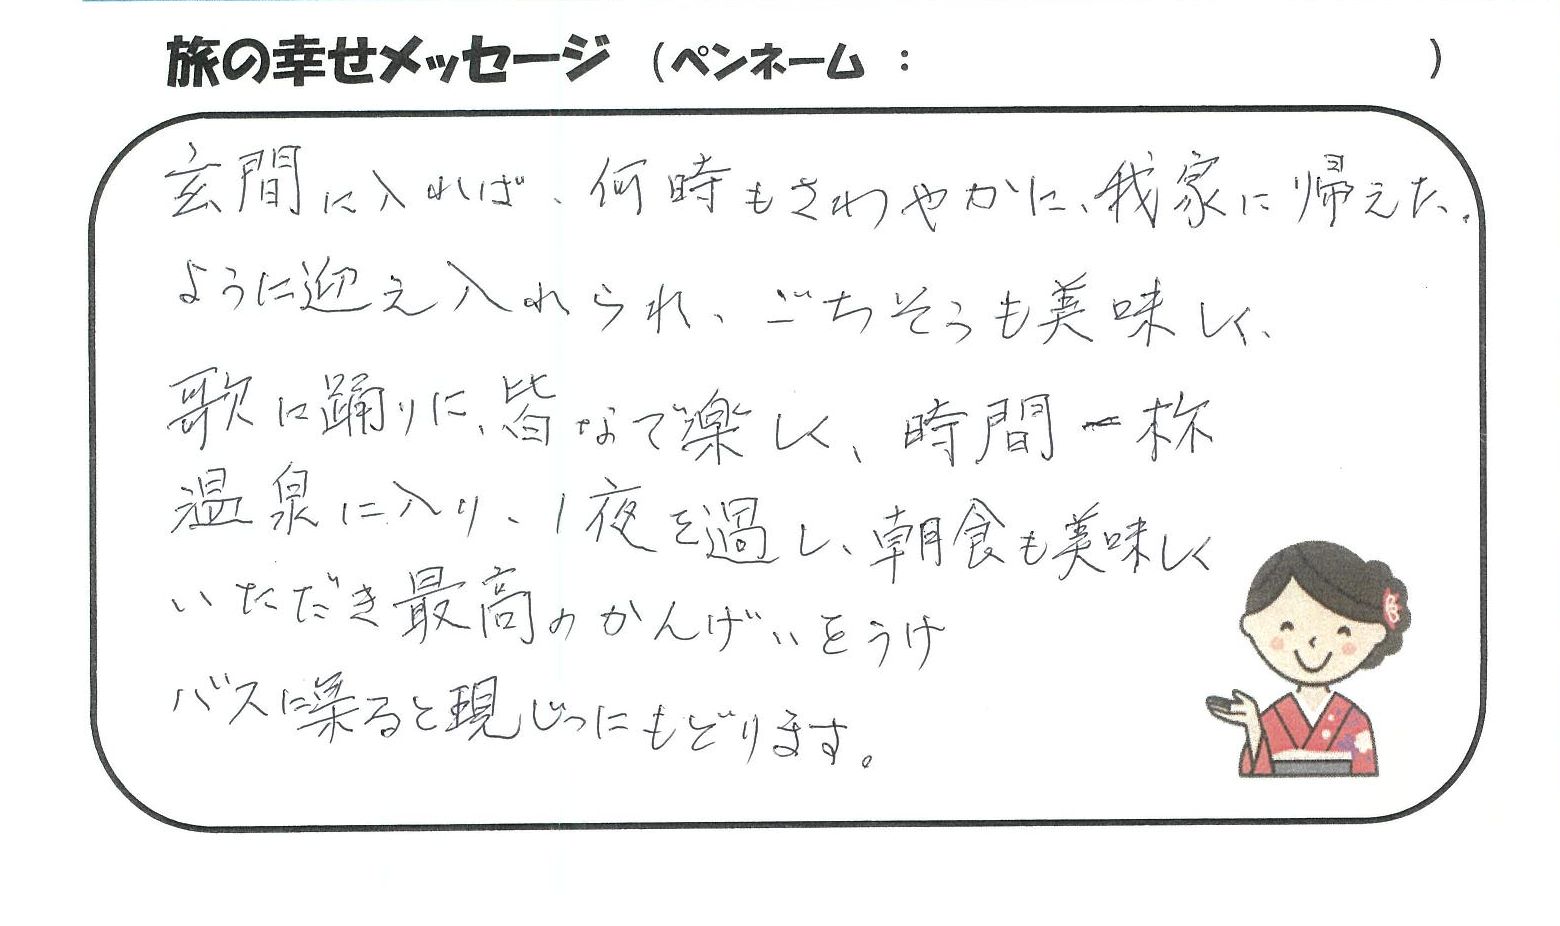 旅の幸せメッセージ (ペンネーム : )
玄間に入れば、何時もさわやかに、我家に帰えた、
ように迎え入れられ、ごちそうも美味しく、
歌に踊りに、皆なで楽しく、時間一杯
温泉に入り、1夜を過し、朝食も美味しく
いただき最高のかんげいをうけ
バスに乗ると現じつにもどります。